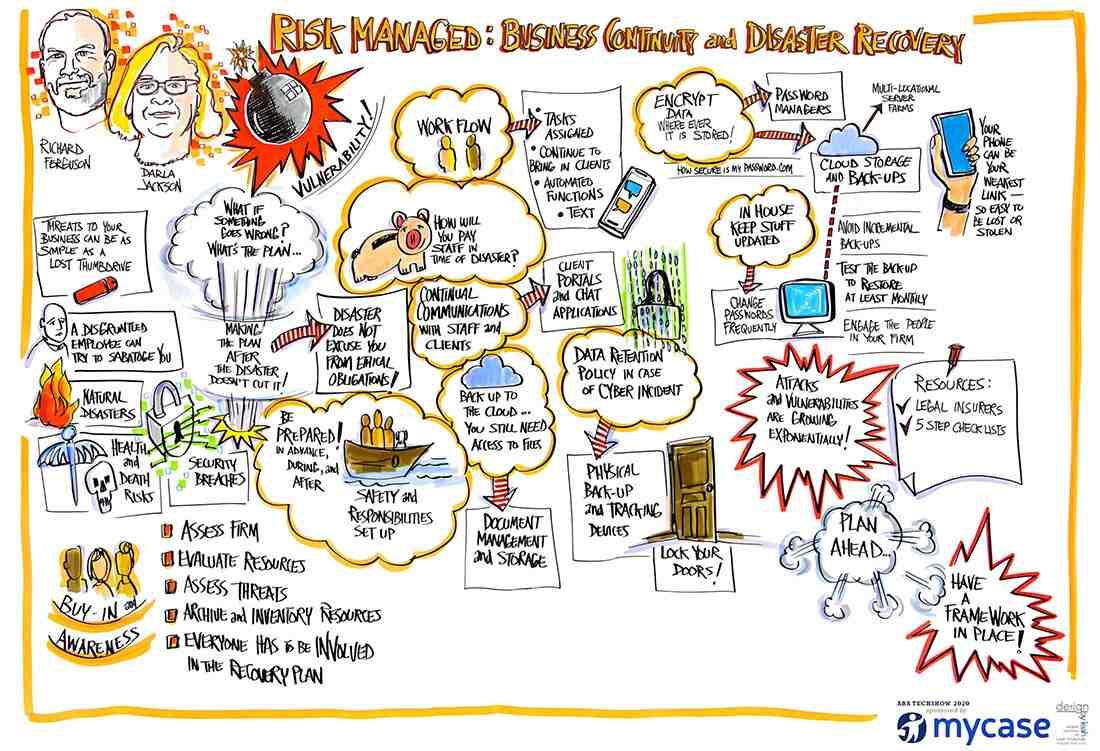 RISK MANAGED: BUSINESS CONTINUITY and DISASTER RECOVERY
RICHARD
FERGUSON
DARLA
JACKSON
VULNERABILITY!
THREATS TO YOUR
BUSINESS CAN BE AS
SIMPLE AS A
LOST THUMBDRIVE
A DISGRUNTLED
EMPLOYEE CAN
TRY TO SABATOGE YOU
NATURAL
DISASTERS
HEALTH
and
DEATH
RISKS
SECURITY
BREACHES
WHAT IF
SOMETHING
GOES WRONG?
WHAT'S THE PLAN...
MAKING
THE PLAN
AFTER
THE DISASTER
DOESN'T CUT IT!
DISASTER
DOES NOT
EXCUSE YOU
FROM ETHICAL
OBLIGATIONS!
WORK FLOW
TASKS
ASSIGNED
• CONTINUE TO
BRING IN CLIENTS
• AUTOMATED
FUNCTIONS
• TEXT
HOW WILL
YOU PAY
STAFF IN
TIME OF DISASTER?
CONTINUAL
COMMUNICATIONS
WITH STAFF and
CLIENTS
CLIENT
PORTALS
and CHAT
APPLICATIONS
BACK UP TO
THE CLOUD...
YOU STILL NEED
ACCESS TO FILES
DOCUMENT
MANAGEMENT
and STORAGE
BE
PREPARED!
IN ADVANCE,
DURING, and
AFTER
SAFETY and
RESPONSIBILITIES
SET UP
DATA RETENTION
POLICY IN CASE
OF CYBER INCIDENT
PHYSICAL
BACK-UP
and TRACKING
DEVICES
LOCK YOUR
DOORS!
ENCRYPT
DATA
WHERE EVER
IT IS STORED!
PASSWORD
MANAGERS
HOW SECURE IS MY PASSWORD.COM
MULTI-LOCATIONAL
SERVER
FARMS
CLOUD STORAGE
AND BACK-UPS
YOUR
PHONE
CAN BE
YOUR
WEAKEST
LINK —
SO EASY TO
BE LOST OR
STOLEN
IN HOUSE
KEEP STUFF
UPDATED
CHANGE
PASSWORDS
FREQUENTLY
AVOID INCREMENTAL
BACK-UPS
TEST THE BACK UP
TO RESTORE
AT LEAST MONTHLY
ENGAGE THE PEOPLE
IN YOUR FIRM
ATTACKS
AND VULNERABILITIES
ARE GROWING
EXPONENTIALLY!
RESOURCES:
LEGAL INSURERS
5 STEP CHECKLISTS
PLAN
AHEAD...
HAVE
A
FRAMEWORK
IN PLACE!
BUY-IN and
AWARENESS
ASSESS FIRM
EVALUATE RESOURCES
ASSESS THREATS
ARCHIVE and INVENTORY RESOURCES
EVERYONE HAS to BE INVOLVED
IN THE RECOVERY PLAN
ABA TECHSHOW 2020
sponsored by
mycase
design